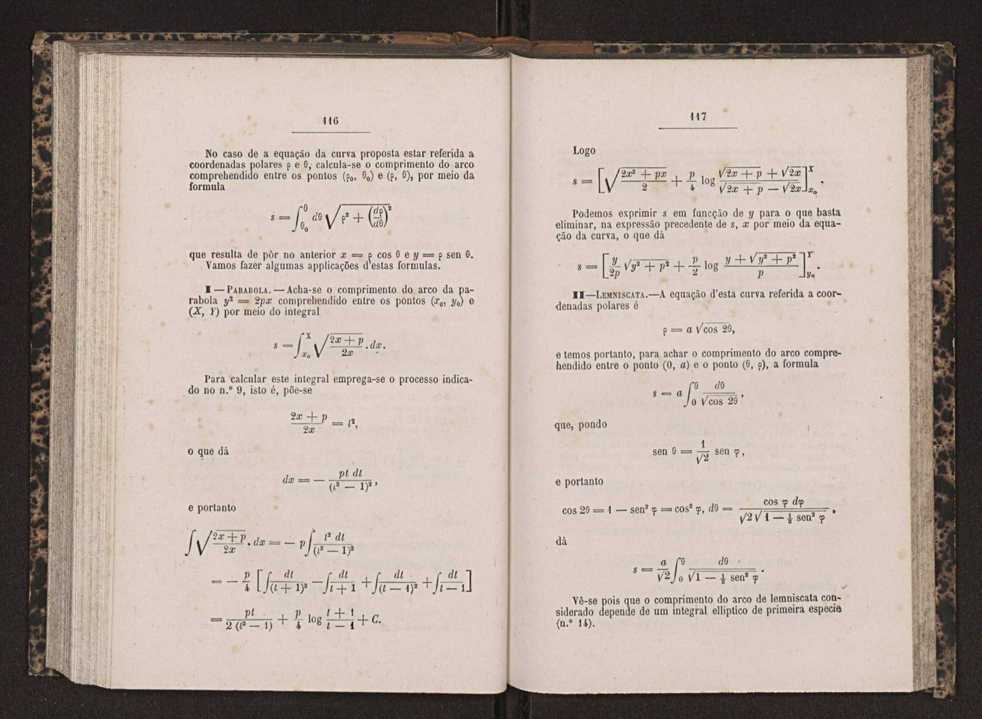 116
No caso de a equação da curva proposta estar referida a
coordenadas polares ρ e θ, calcula-se o comprimento do arco
comprehendido entre os pontos (ρ₀, θ₀) e (ρ, θ), por meio da
formula
s = ∫_{θ₀}^{θ} dθ √(ρ² + (dρ/dθ)²)
que resulta de pôr no anterior x = ρ cos θ e y = ρ sen θ.
Vamos fazer algumas applicações d'estas formulas.
I — PARABOLA. — Acha-se o comprimento do arco da pa-
rabola y² = 2px comprehendido entre os pontos (x₀, y₀) e
(X, Y) por meio do integral
s = ∫_{x₀}^{X} √((2x + p)/2x) . dx.
Para calcular este integral emprega-se o processo indica-
do no n.º 9, isto é, põe-se
(2x + p)/2x = t²,
o que dá
dx = − pt dt/(t² − 1)²,
e portanto
∫ √((2x + p)/2x) . dx = − p ∫ t² dt/(t² − 1)²
= − p/4 [∫ dt/(t + 1)² − ∫ dt/(t + 1) + ∫ dt/(t − 1)² + ∫ dt/(t − 1)]
= pt/2 (t² − 1) + p/4 log (t + 1)/(t − 1) + C.
117
Logo
s = [√((2x² + px)/2) + p/4 log (√(2x + p) + √(2x))/(√(2x + p) − √(2x))]_{x₀}^{X} .
Podemos exprimir s em funcção de y para o que basta
eliminar, na expressão precedente de s, x por meio da equa-
ção da curva, o que dá
s = [y/2p √(y² + p²) + p/2 log (y + √(y² + p²))/p]_{y₀}^{Y} .
II — LEMNISCATA. — A equação d'esta curva referida a coor-
denadas polares é
ρ = a √(cos 2θ),
e temos portanto, para achar o comprimento do arco compre-
hendido entre o ponto (0, a) e o ponto (θ, ρ), a formula
s = a ∫_{0}^{θ} dθ/√(cos 2θ) ,
que, pondo
sen θ = 1/√2 sen φ,
e portanto
cos 2θ = 1 − sen² φ = cos² φ, dθ = cos φ dφ/(√2 √(1 − ½ sen² φ)) ,
dá
s = a/√2 ∫_{0}^{θ} dθ/√(1 − ½ sen² φ) .
Vê-se pois que o comprimento do arco de lemniscata con-
siderado depende de um integral elliptico de primeira especie
(n.º 14).